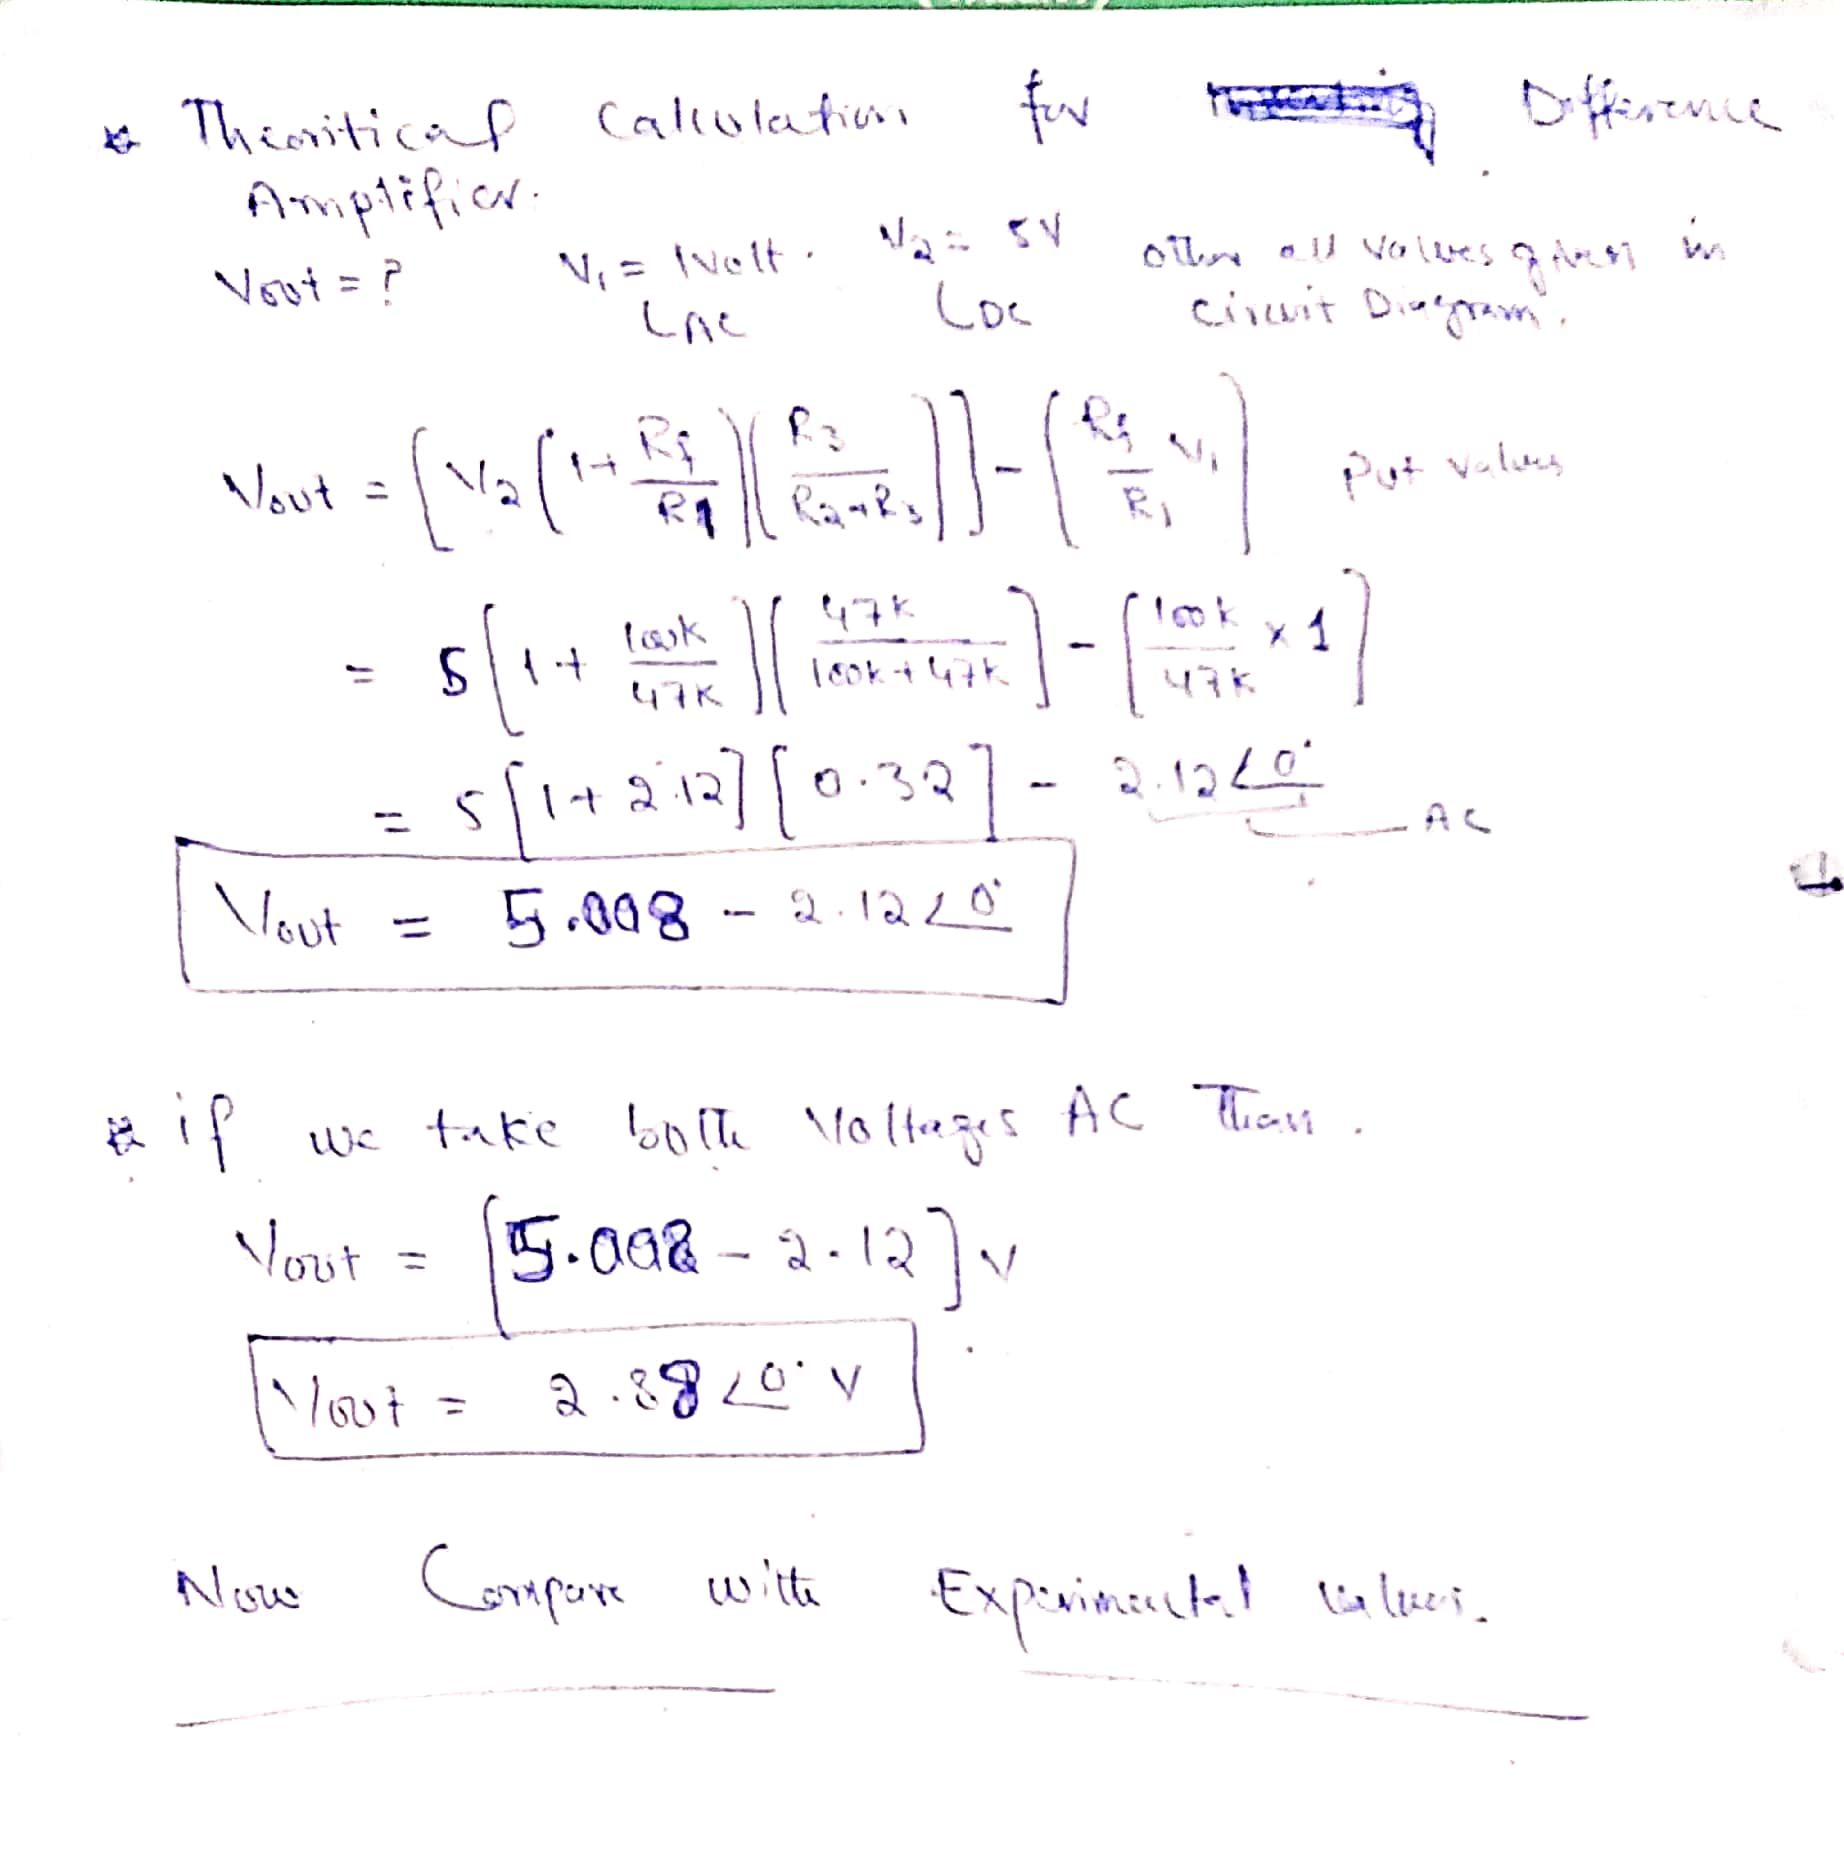 * Theoritical Calculation for Difference
Amplifier.
Vout = ? V₁ = 1Volt. V₂ = 5V other all values given in
AC DC Circuit Diagram.
Vout = [V₂(1+ Rf/R1)(R3/(R2+R3))] - [Rf/R1 V₁] Put values
= 5[1+ 100K/47K)(47K/(100K+47K)] - [100K/47K × 1]
= 5[1+2.12][0.32] - 2.12∠0°
AC
Vout = 5.008 - 2.12∠0°
* if we take both Voltages AC Than.
Vout = [5.008 - 2.12] V
Vout = 2.88∠0° V
Now Compare with Experimental values.